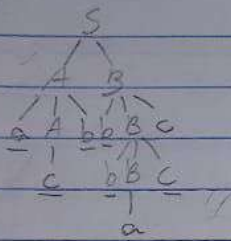 S
A B
a A b b B c
c b B c
a